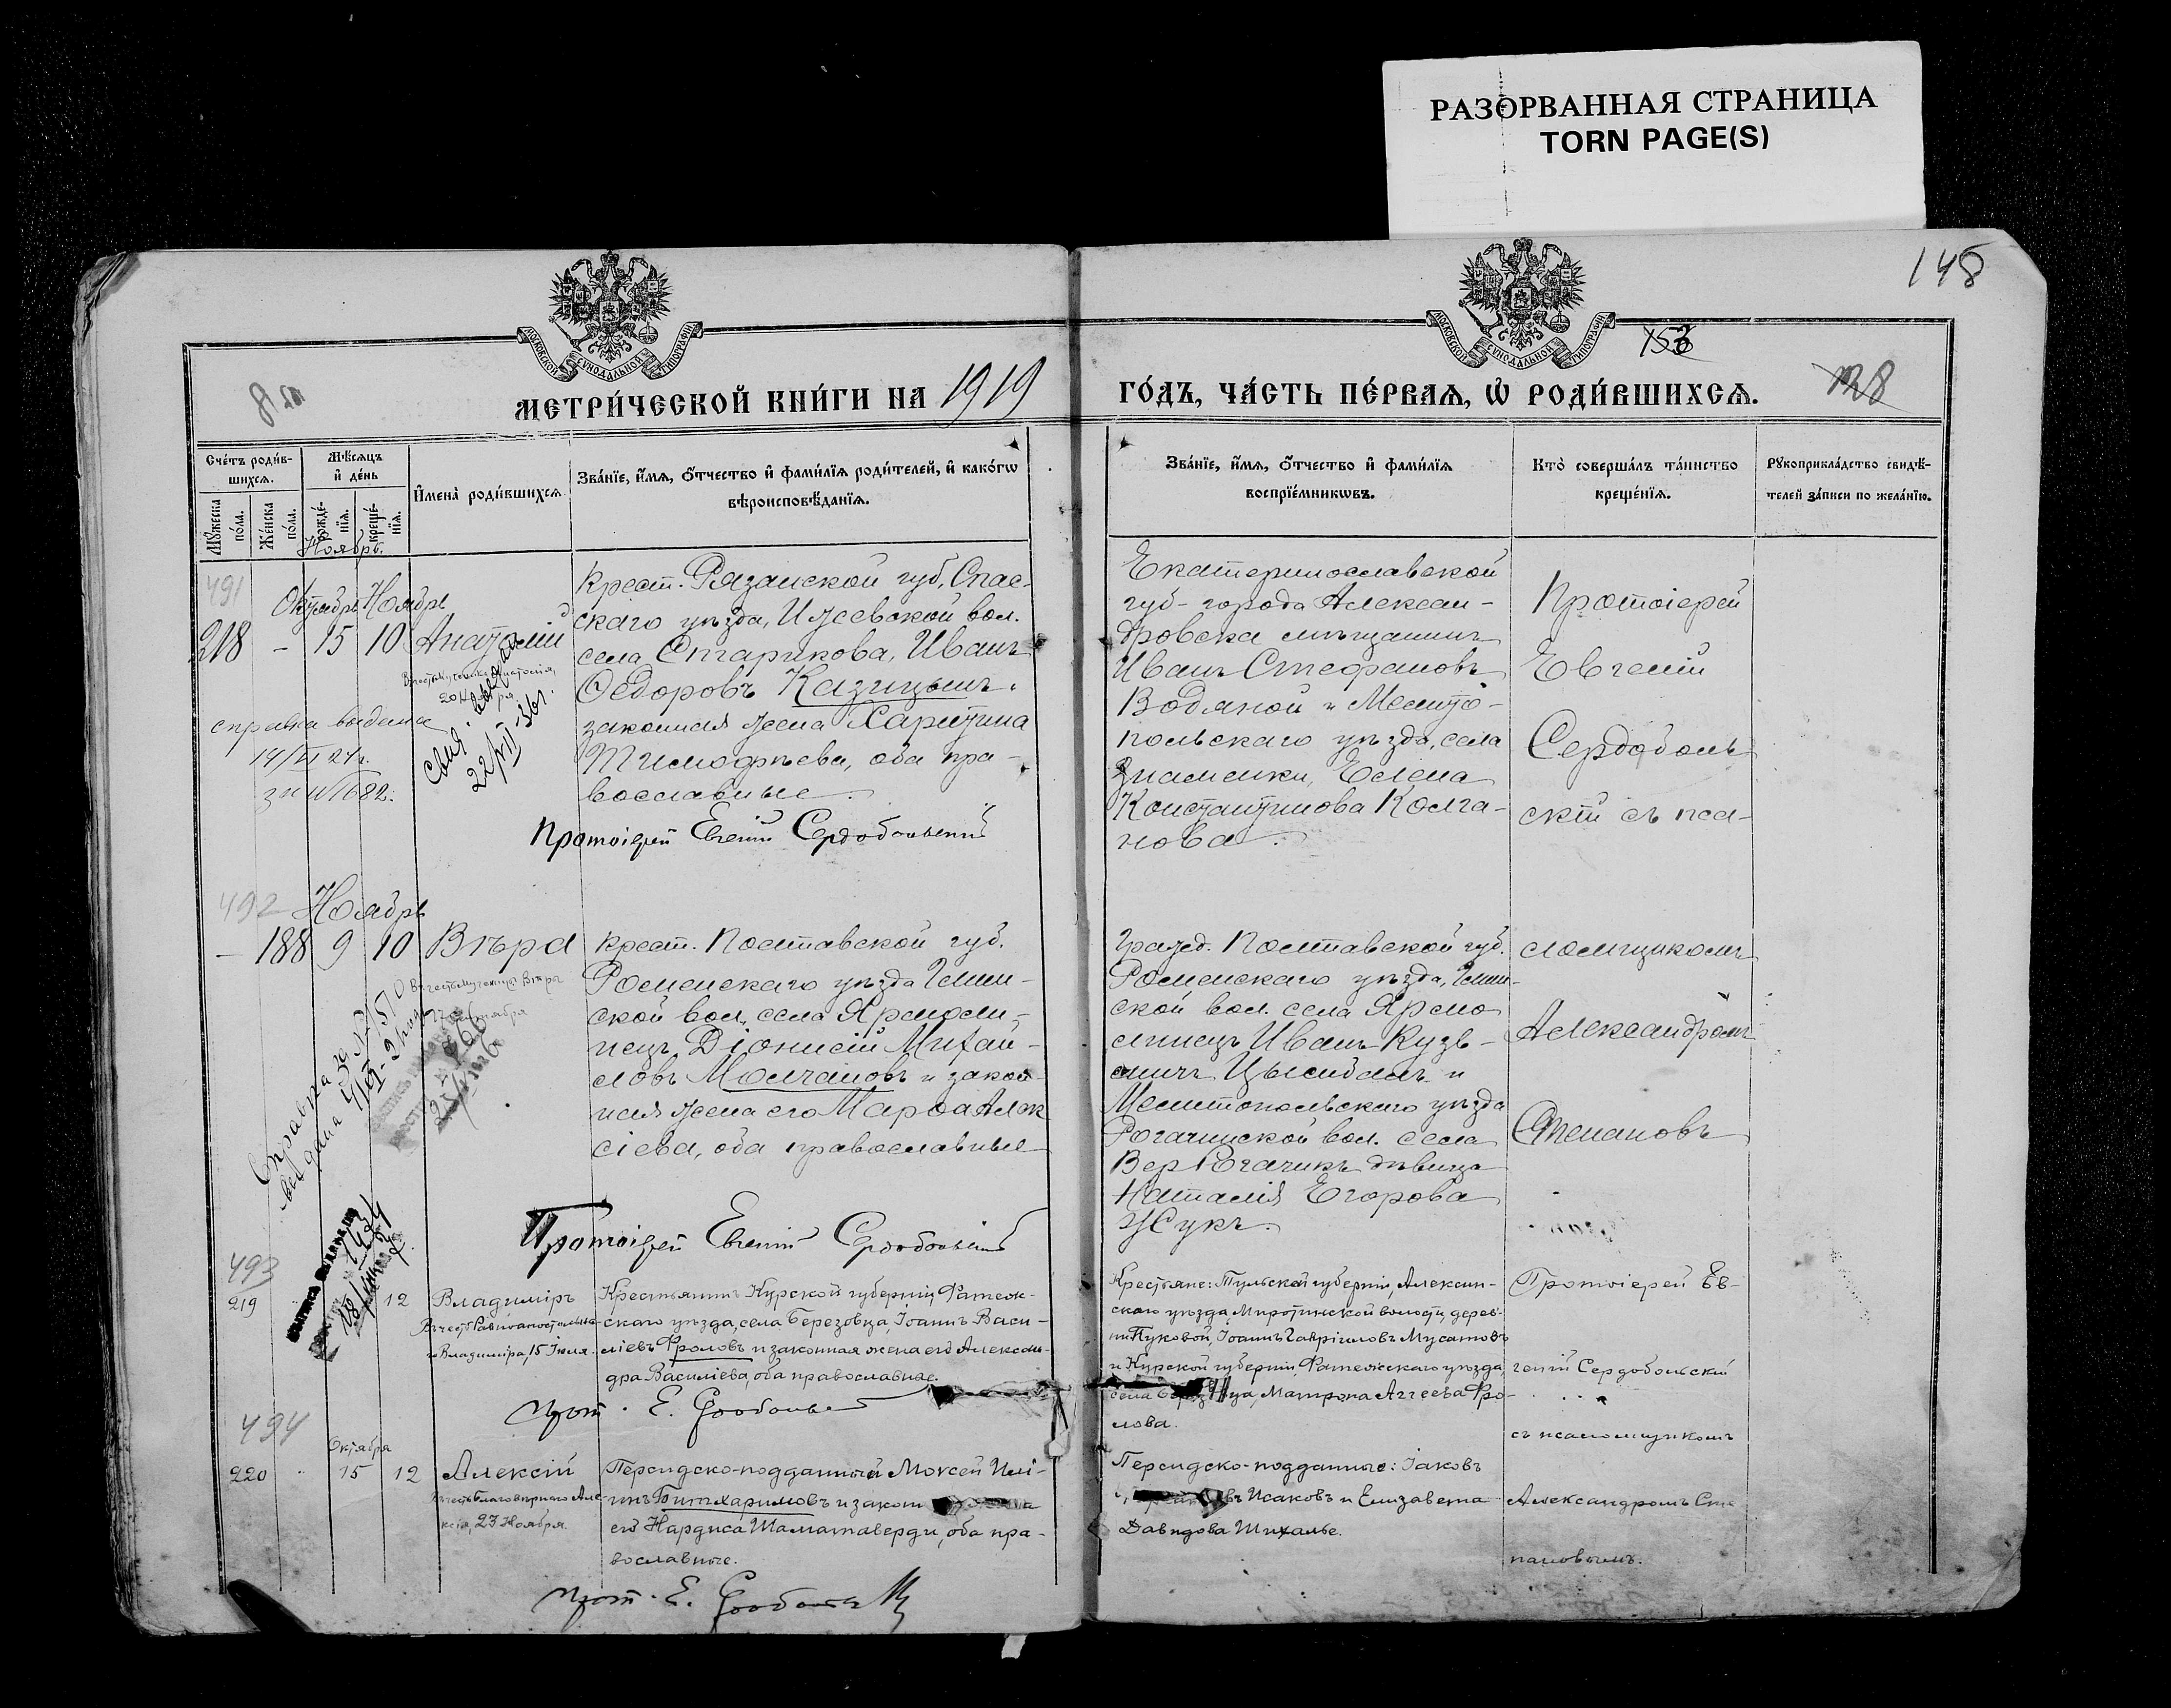 РАЗОРВАННАЯ СТРАНИЦА
TORN PAGE(S)
148
МОСКОВСКОЙ СУНОДАЛЬНОЙ ТИПОГРАФІИ
МОСКОВСКОЙ СУНОДАЛЬНОЙ ТИПОГРАФІИ
МЕТРИ́ЧЕСКОЙ КНИ́ГИ НА 1919
ГО́ДЪ, ЧА́СТЬ ПЕ́РВАЯ, Ѡ РОДИ́ВШИХСЯ.
128
Сче́тъ роди́в-
шихся.
Мѣ́сяцъ
и де́нь
Му́жеска по́ла.
Же́нска по́ла.
рожде́-
нїя.
креще́-
нїя.
Имена̀ роди́вшихся
Зва́нїе, и́мя, о́тчество и фами́лїя роди́телей, и како́гѡ
вѣроисповѣ́данїя.
Зва́нїе, и́мя, о́тчество и фами́лїя
воспрїе́мникѡвъ.
Кто̀ соверша́лъ та́инство
креще́нїя.
Рꙋкоприкла́дство свидѣ́-
телей за́писи по жела́нїю.
Ноябрь.
491
Октябрь Ноябрь
218 - 15 10 Анатолій
справка выдана
14/VI 21 г.
за № 1682.
Крест. Рязанской губ, Спас-
скаго уѣзда, Ижевской вол.
села Старикова, Иванъ
Ѳедоровъ Казицынъ.
законная жена Харитина
Тимофѣева, оба пра-
вославные.
Протоіерей Евгеній Сердобольскій
Екатеринославской
губ- города Алексан-
дровска мѣщанинъ
Иванъ Стефановъ
Водяной и Мелито-
польскаго уѣзда, села
Знаменки, Елена
Константинова Колга-
нова.
Протоіерей
Евгеній
Сердоболь
скій съ пса-
492 Ноябрь
- 188 9 10 Вѣра
Справка за № 1570
выдана
Крест. Полтавской губ.
Роменскаго уѣзда Глин-
ской вол. села Ярмоли-
нецъ, Діонисій Михаи-
ловъ Молчановъ и закон-
ная жена его Марѳа Алек
сіева, оба православные
Протоіерей Евгеній Сердобольскій
Гражд. Полтавской губ.
Роменскаго уѣзда, Глин-
ской вол. села Ярмо
линецъ Иванъ Кузь-
мичъ Цымбалъ и
Мелитопольскаго уѣзда
Рогачинской вол. села
Вер Рогачикъ дѣвица
Наталія Егорова
Жукъ.
ломщикомъ
Александромъ
Степановъ
493
219 12 Владиміръ
Въ честь Равноапостольна-
го Владиміра, 15 Іюля.
Крестьянинъ Курской губерніи, Фатеж-
скаго уѣзда, села Березовца, Іоаннъ Васи-
ліевъ Фроловъ и законная жена его Алексан-
дра Василіева, оба православные.
прот. Е. Сердобольск
Крестьяне: Тульской губерніи, Алексин-
скаго уѣзда, Миротинской волости, дерев-
ни Пуковой, Іоаннъ Гавріиловъ Мусатовъ
и Курской губерніи, Фатежскаго уѣзда,
села Матрона Аггеева Фро-
лова.
Протоіерей Ев-
геній Сердобольскій
съ псаломщикомъ
494
Октября
220 15 12 Алексій
Въ честь Благовѣрнаго Але-
ксія, 23 Ноября.
Персидско-подданный Моисей Илі-
инъ Битхаримовъ и закон
его Нардиса Шаматаверди, оба пра-
вославные.
прот. Е. Сердобольскій
Персидско-подданные: Іаковъ
Исаковъ и Елизавета
Давидова Шихалье.
Александромъ Сте
пановымъ.